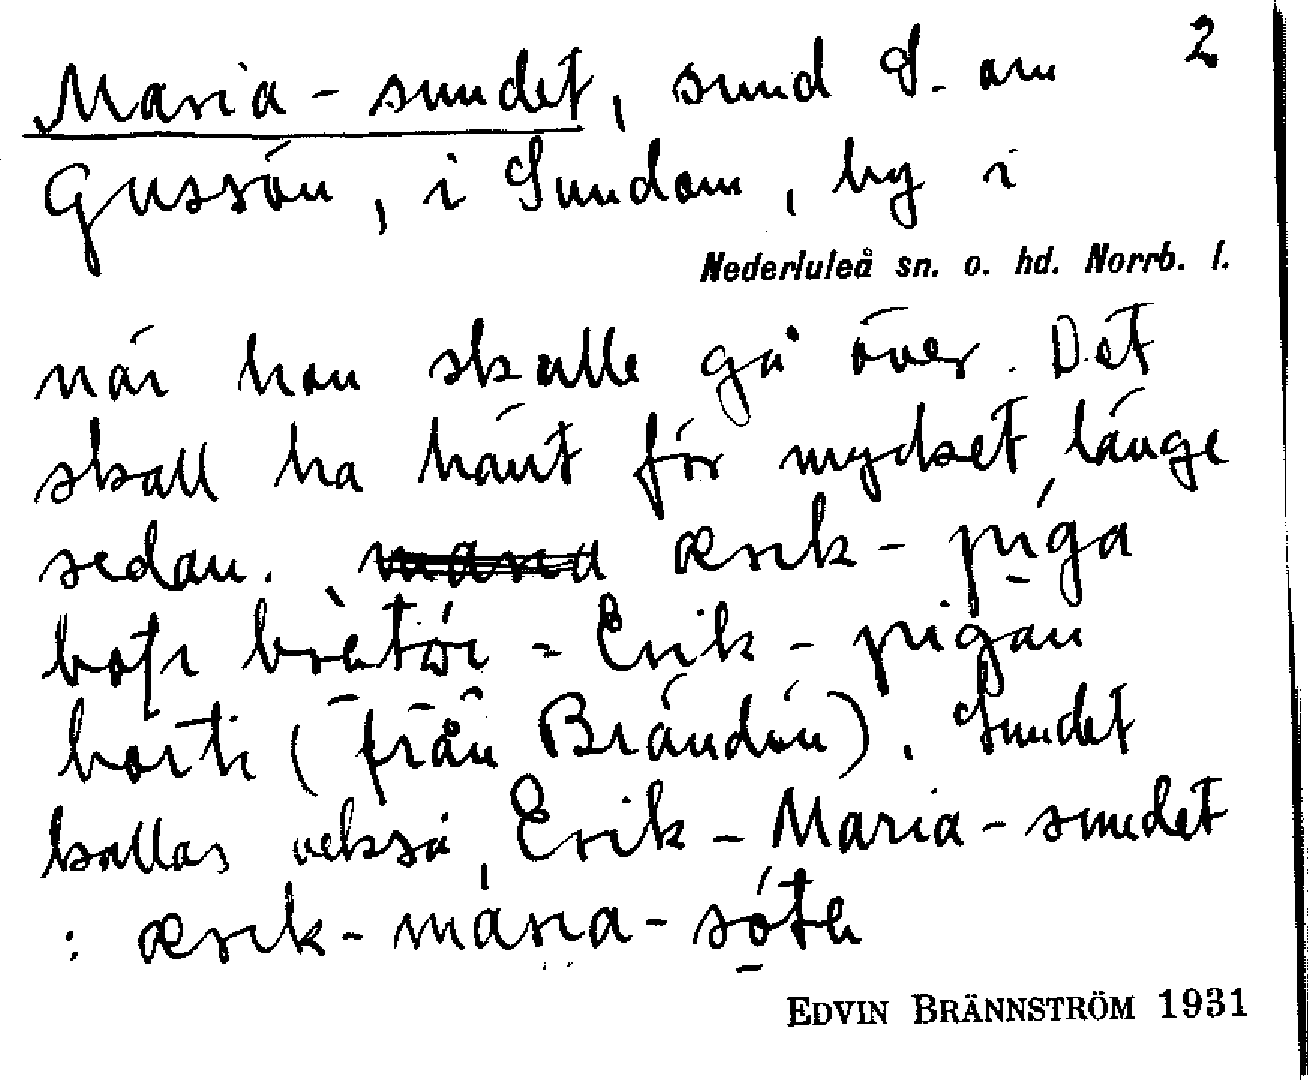 2
Maria-sundet, sund S. om
Gussön, i Sundom, by i
Nederluleå sn. o. hd. Norrb. l.
när hon skulle gå över. Det
skall ha hänt för mycket länge
sedan. maria ærik-píga
bort - Erik-pigan
borti (från Brändön). Sundet
kallas också, Erik-Maria-sundet
: ærik-mária-sóte
EDVIN BRÄNNSTRÖM 1931